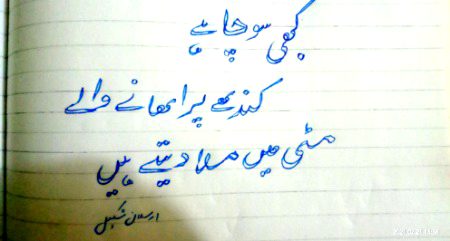 کبھی سوچا ہے
کندھے پر اٹھانے والے
مٹی میں ملا دیتے ہیں
ارسلان شکیل